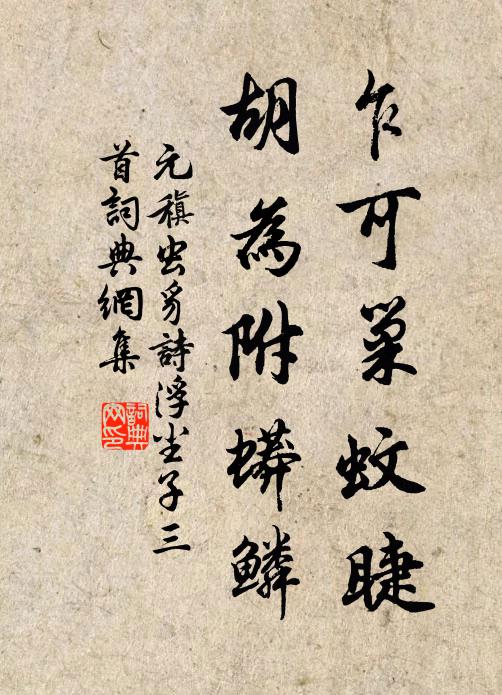 乍可巢蚊睫
胡為附蟒鱗
元稹虫豸詩浮尘子三
首詞典網集
詞典网印